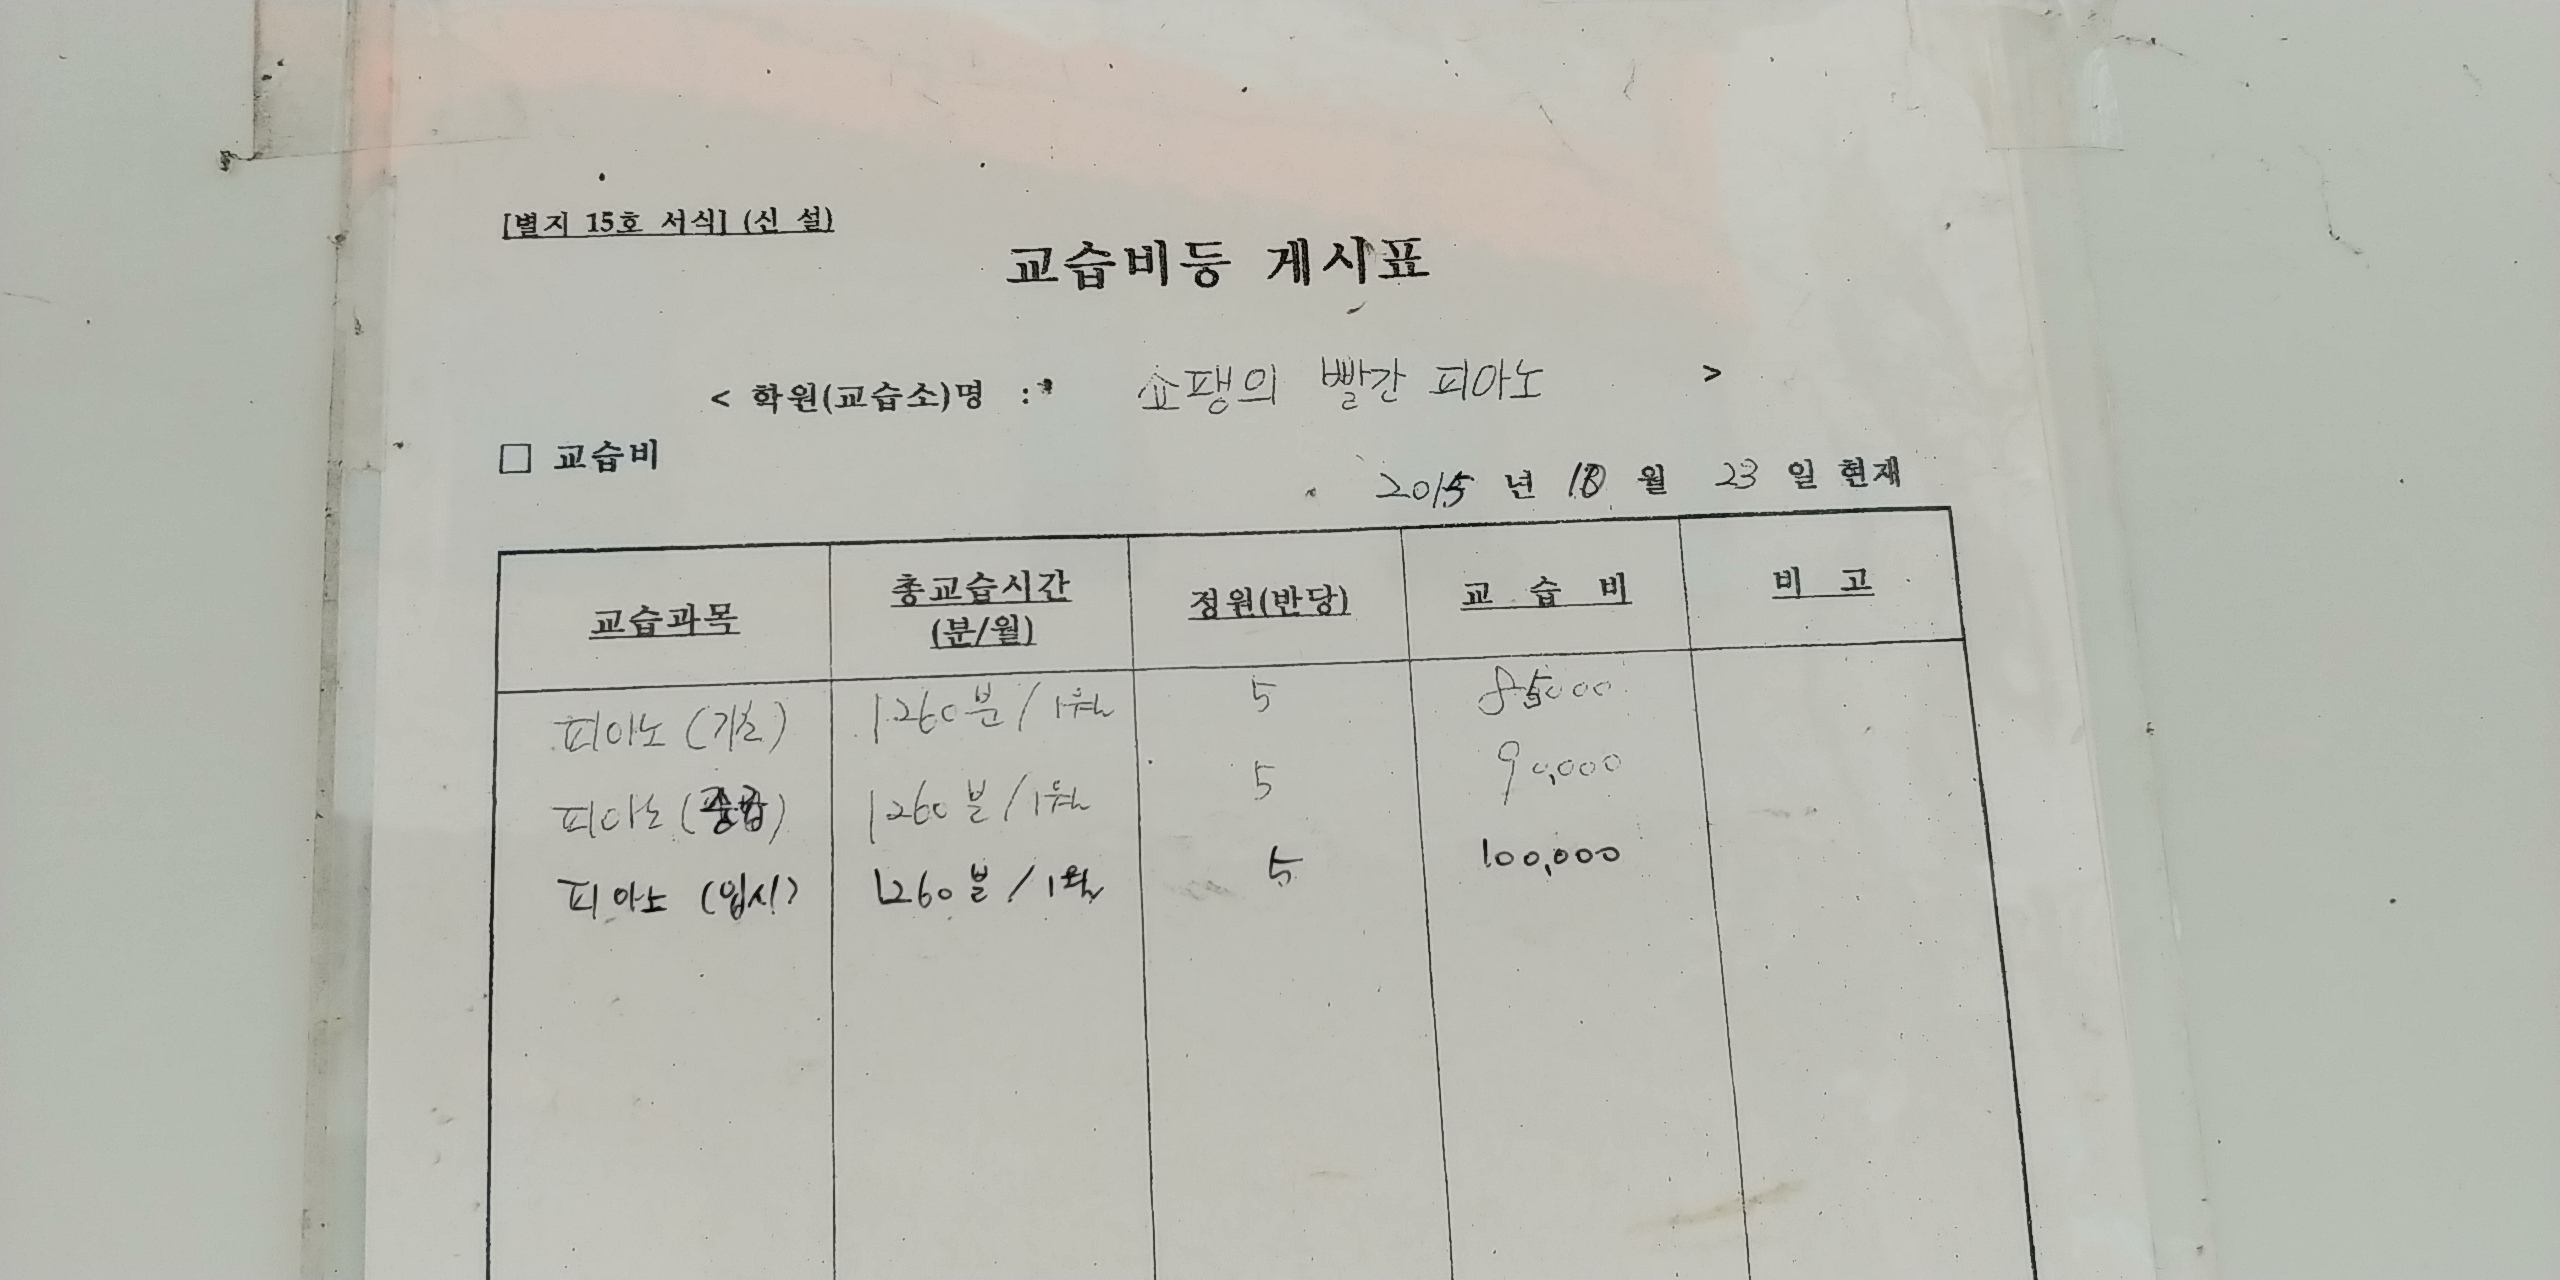 [별지 15호 서식] (신 설)
교습비등 게시표
< 학원(교습소)명 : 쇼팽의 빨간 피아노 >
□ 교습비
2015 년 월 23 일 현재
교습과목 총교습시간 (분/월) 정원(반당) 교 습 비 비 고
피아노 (기초) 1260분/1월 5 85000
피아노 (중급) 1260분/1월 5 90,000
피아노 (입시) 1260분/1월 5 100,000